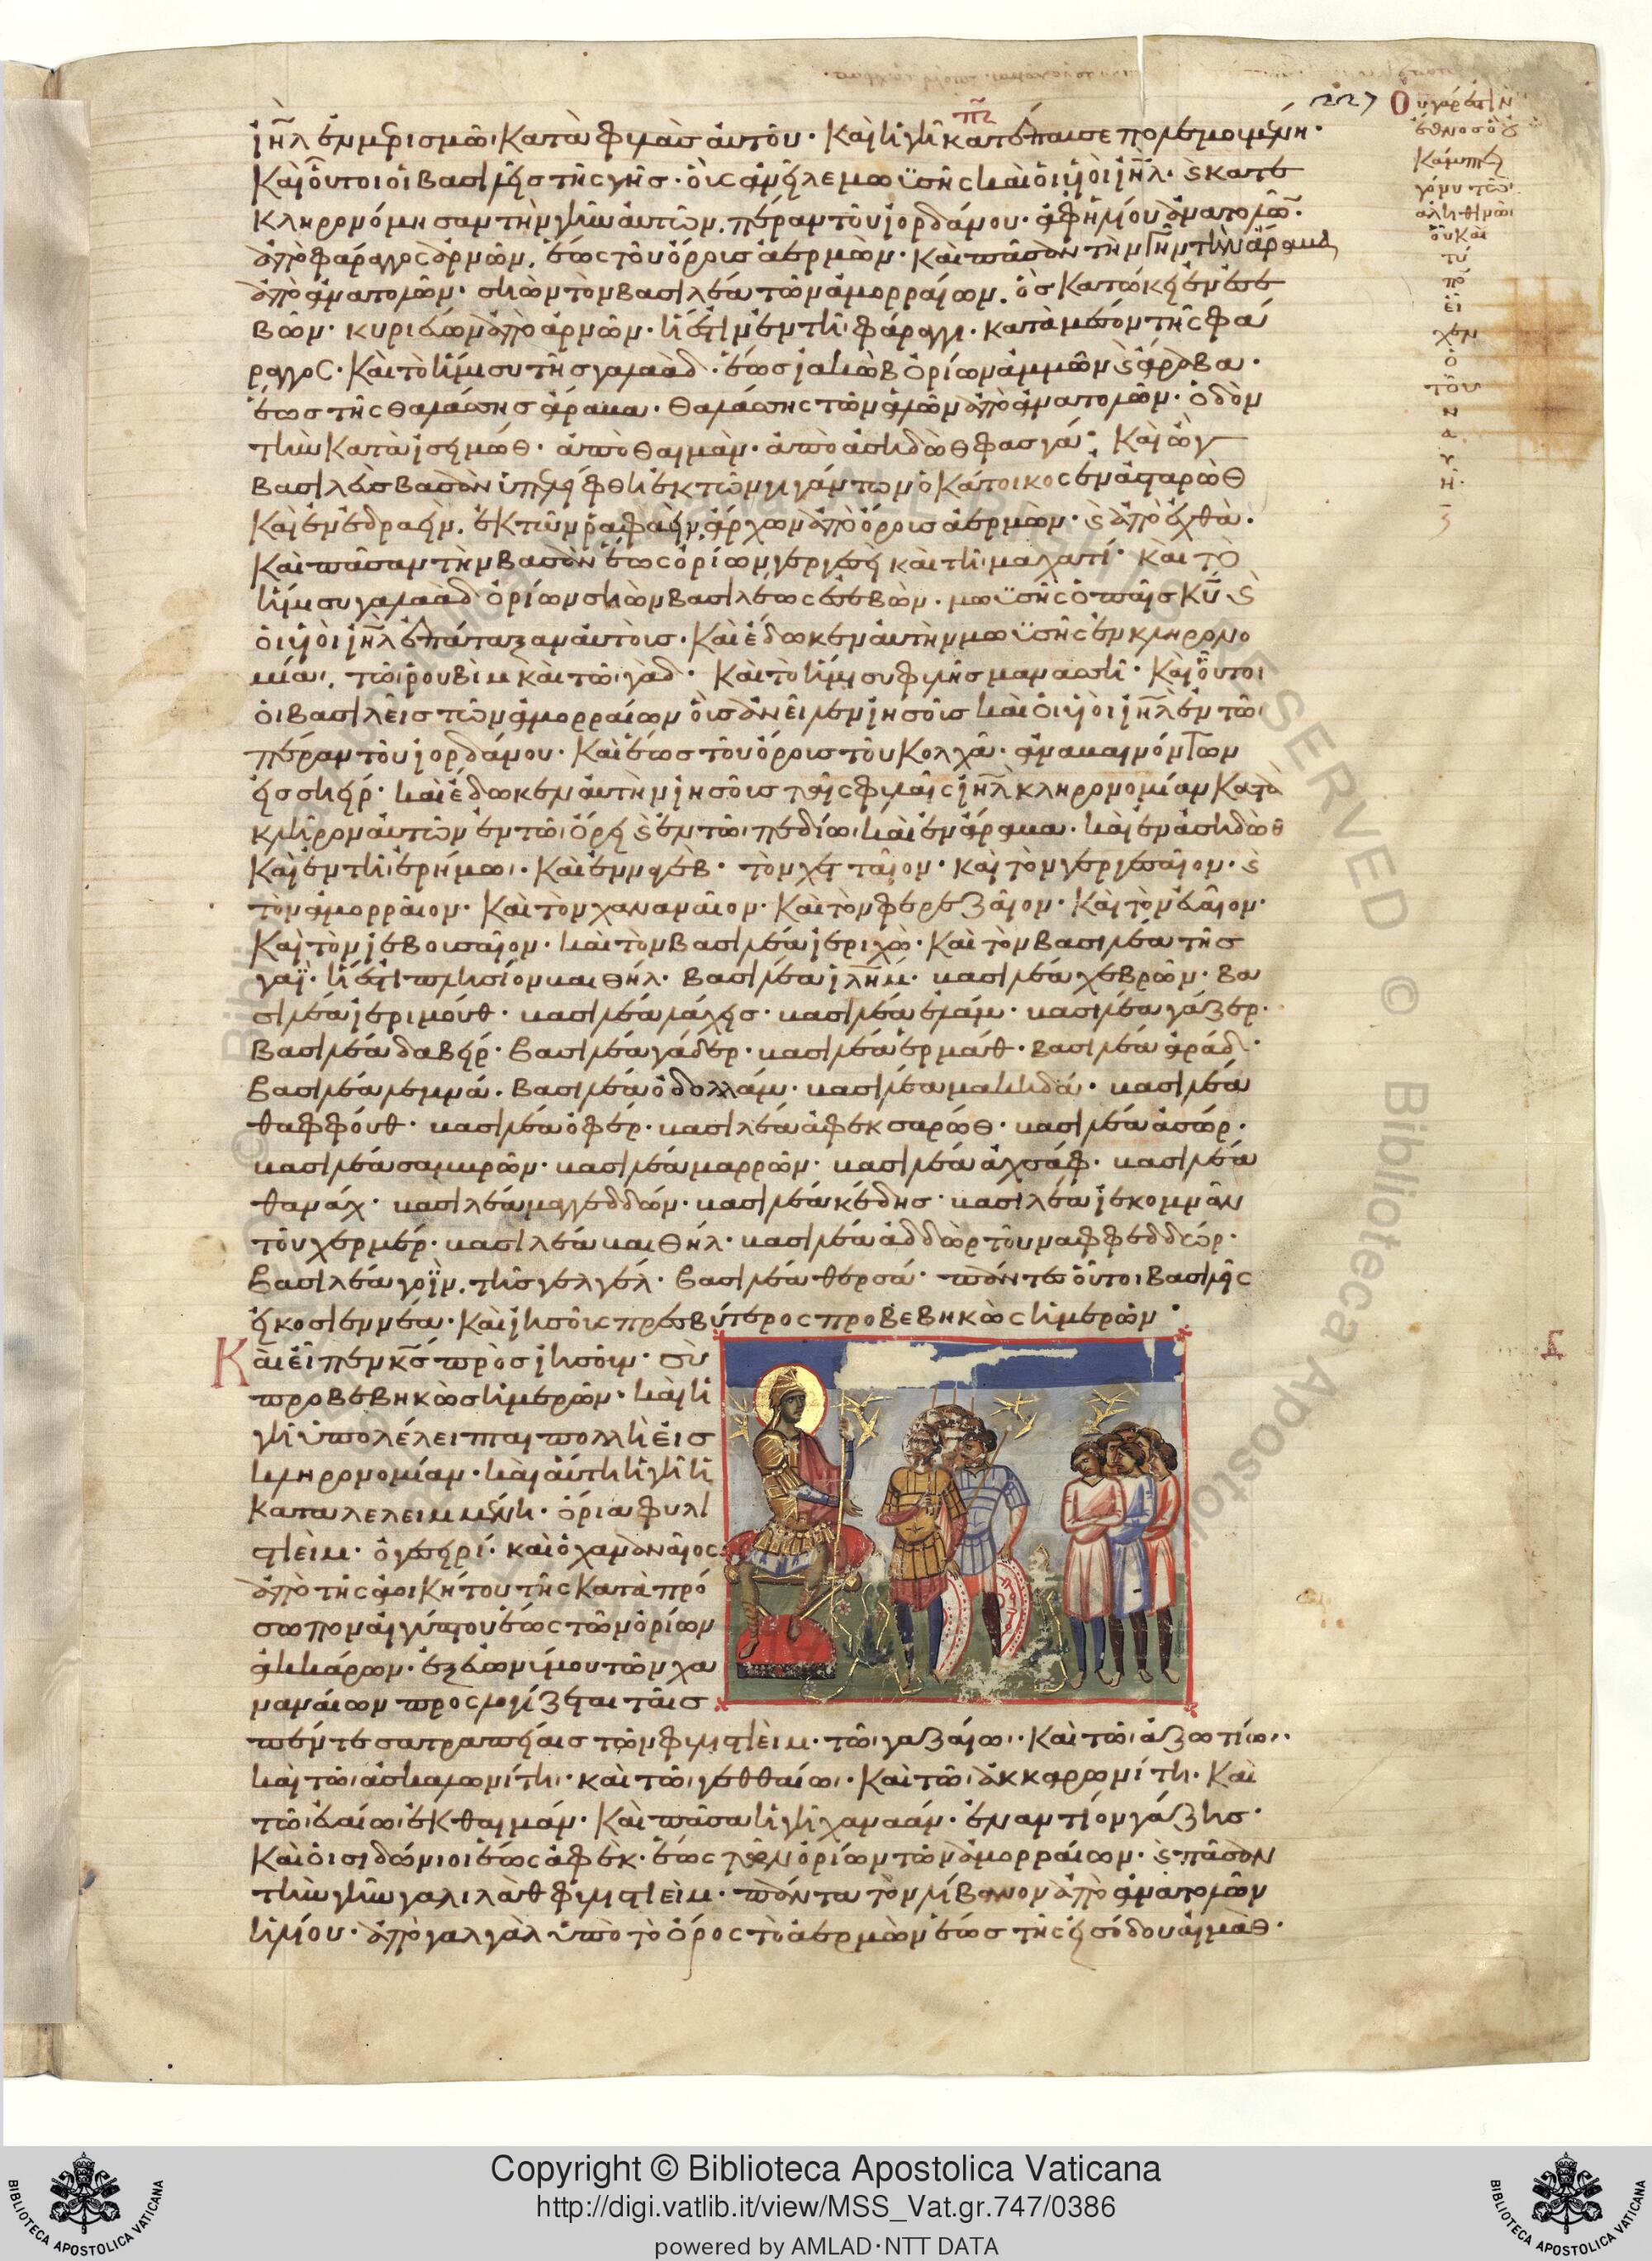 227
ιη̅λ ἐν μερισμῶ· κατὰ φυλὰς αὐτῶν· καὶ ἡ γῆ κατέπαυσε πολεμουμένη·
Καὶ οὗτοι οἱ βασιλεῖς τῆς γῆς· οὓς ἀνεῖλε μωϋσῆς καὶ οἱ υἱοὶ ιη̅λ· ϗ κατε
κληρονόμησαν τὴν γῆν αὐτῶν. πέραν τοῦ ἰορδάνου· ἀφ' ἡλίου ἀνατολῶν·
ἀπὸ φάραγγος ἀρνῶν. ἕως τοῦ ὄρους ἀερμὼν· καὶ πᾶσαν τὴν γῆν τὴν ἄραβα
ἀπὸ ἀνατολῶν· σηὼν τὸν βασιλέα τῶν ἀμορραίων. ὃς κατώκει ἐν ἐσε
βὼν· κυριεύων ἀπὸ ἀρνῶν· ἥ ἐστιν ἐν τῆ φάραγγι· κατὰ μέσον τῆς φά
ραγγος· καὶ τὸ ἥμισυ τῆς γαλαὰδ· ἕως ἰακὼβ ὁρίων ἀμμὼν ϗ ἄραβα·
ἕως τῆς θαλάσσης ἄραβα· θαλάσσης τῶν ἁλῶν ἀπὸ ἀνατολῶν· ὁδὸν
τὴν κατὰ ἰσειμὼθ· ἀπὸ θαιμὰν· ἀπὸ ἀσηδὼθ φασγά· Καὶ ὢγ
βασιλεὺς βασὰν ὑπελείφθη ἐκ τῶν γιγάντων ὁ κάτοικος ἐν ἀσταρὼθ
καὶ ἐν ἐδραείν. ἐκ τῶν ῥαφαείν. ἄρχων ἀπὸ ὄρους ἀερμὼν· ϗ ἀπὸ ἐχθὰ·
καὶ πᾶσαν τὴν βασὰν ἕως ὁρίων γεργεσεὶ καὶ τῆ μαχατί· καὶ τὸ
ἥμισυ γαλαὰδ ὁρίων σηὼν βασιλέως ἐσεβὼν· μωϋσῆς ὁ παῖς κ̅υ̅ ϗ
οἱ υἱοὶ ιη̅λ ἐπάταξαν αὐτοὺς· καὶ ἔδωκεν αὐτὴν μωϋσῆς ἐν κληρονο
μία. τῶ ῥουβὶμ καὶ τῶ γὰδ· καὶ τὸ ἥμισυ φυλῆς μανασσῆ· καὶ οὗτοι
οἱ βασιλεῖς τῶν ἀμορραίων οὓς ἀνεῖλεν ἰησοῦς καὶ οἱ υἱοὶ ιη̅λ ἐν τῶ
πέραν τοῦ ἰορδάνου· καὶ ἕως τοῦ ὄρους τοῦ κολχᾶ· ἀναβαινόντων
εἰς σηείρ· καὶ ἔδωκεν αὐτὴν ἰησοῦς ταῖς φυλαῖς ιη̅λ κληρονομίαν κατὰ
κλῆρον αὐτῶν ἐν τῶ ὄρει ϗ ἐν τῶ πεδίω· καὶ ἐν ἄραβα· καὶ ἐν ἀσηδὼθ
καὶ ἐν τῆ ἐρήμω· καὶ ἐν ναγὲβ· τὸν χετταῖον· καὶ τὸν γεργεσαῖον· ϗ
τὸν ἀμορραῖον· καὶ τὸν χαναναῖον· καὶ τὸν φερεζαῖον· καὶ τὸν εὐαῖον·
καὶ τὸν ἰεβουσαῖον· καὶ τὸν βασιλέα ἰεριχὼ· καὶ τὸν βασιλέα τῆς
γαΐ· ἥ ἐστι πλησίον βαιθήλ· βασιλέα ιλη̅μ· βασιλέα χεβρὼν· βα
σιλέα ἰεριμούθ· βασιλέα λάχεις· βασιλέα ἐλάμ· βασιλέα γάζερ·
βασιλέα δαβείρ· βασιλέα γάδερ· βασιλέα ἑρμάθ· βασιλέα ἀράδ·
βασιλέα λεμνά· βασιλέα ὀδολλάμ· βασιλέα μακηδά· βασιλέα
θαφφούθ· βασιλέα ὀφέρ· βασιλέα ἀφὲκ σαρὼθ· βασιλέα ἀσώρ·
βασιλέα σαμυρὼν· βασιλέα μαρρὼν· βασιλέα ἀχσάφ· βασιλέα
θανάχ· βασιλέα μαγεδδών· βασιλέα κέδης· βασιλέα ἰεκομμὰν
τοῦ χερμέρ· βασιλέα βαιθήλ· βασιλέα ἀδδὼρ τοῦ ναφφεδδώρ·
βασιλέα γοΐμ. τῆς γελγέλ· βασιλέα θερσά· πάντες οὗτοι βασιλεῖς
εἰκοσιεννέα· καὶ ἰησοῦς πρεσβύτερος προβεβηκὼς ἡμερῶν·
Καὶ εἶπεν κ̅ς̅ πρὸς ἰησοῦν· σὺ
προβέβηκας ἡμερῶν· καὶ ἡ
γῆ ὑπολέλειπται πολλὴ εἰς
κληρονομίαν· καὶ αὕτη ἡ γῆ ἡ
καταλελειμμένη· ὅρια φυλι
στιείμ· ὁ γεσερί· καὶ ὁ χαναναῖος
ἀπὸ τῆς ἀοικήτου τῆς κατὰ πρό
σωπον αἰγύπτου ἕως τῶν ὁρίων
ἀκκάρων· ἐξ εὐωνύμου τῶν χα
ναναίων προσλογίζεται ταῖς
πέντε σατραπείαις τῶν φυλιστιείμ· τῶ γαζαίω· καὶ τῶ ἀζωτίω·
καὶ τῶ ἀσκαλωνίτη· καὶ τῶ γεθθαίω· καὶ τῶ ἀκκαρωνίτη· καὶ
τῶ εὐαίω ἐκ θαιμάν· καὶ πᾶσα ἡ γῆ χαναάν· ἐναντίον γάζης·
καὶ οἱ σιδώνιοι ἕως ἀφὲκ· ἕως τῶν ὁρίων τῶν ἀμορραίων· ϗ πᾶσαν
τὴν γῆν γαλιλὰθ φυλιστιείμ· πάντα τὸν λίβανον ἀπὸ ἀνατολῶν
ἡλίου· ἀπὸ γαλγὰλ ὑπὸ τὸ ὄρος τὸ ἀερμὼν ἕως τῆς εἰσόδου αἰμὰθ·
Copyright © Biblioteca Apostolica Vaticana
http://digi.vatlib.it/view/MSS_Vat.gr.747/0386
powered by AMLAD·NTT DATA
BIBLIOTECA APOSTOLICA VATICANA
BIBLIOTECA APOSTOLICA VATICANA